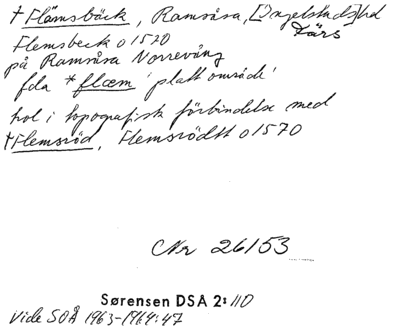 † Flämsbäck, Ramsåsa, [Ingelstads]hd
Färs
Flemsbeck o 1570
på Ramsåsa Norrevång
fda *flæm 'platt område'
trol i topografisk förbindelse med
†Flemsröd, Flemsrödtt o 1570
Nr 26153
Sørensen DSA 2: 110
Vide SOÅ 1963-1964:47